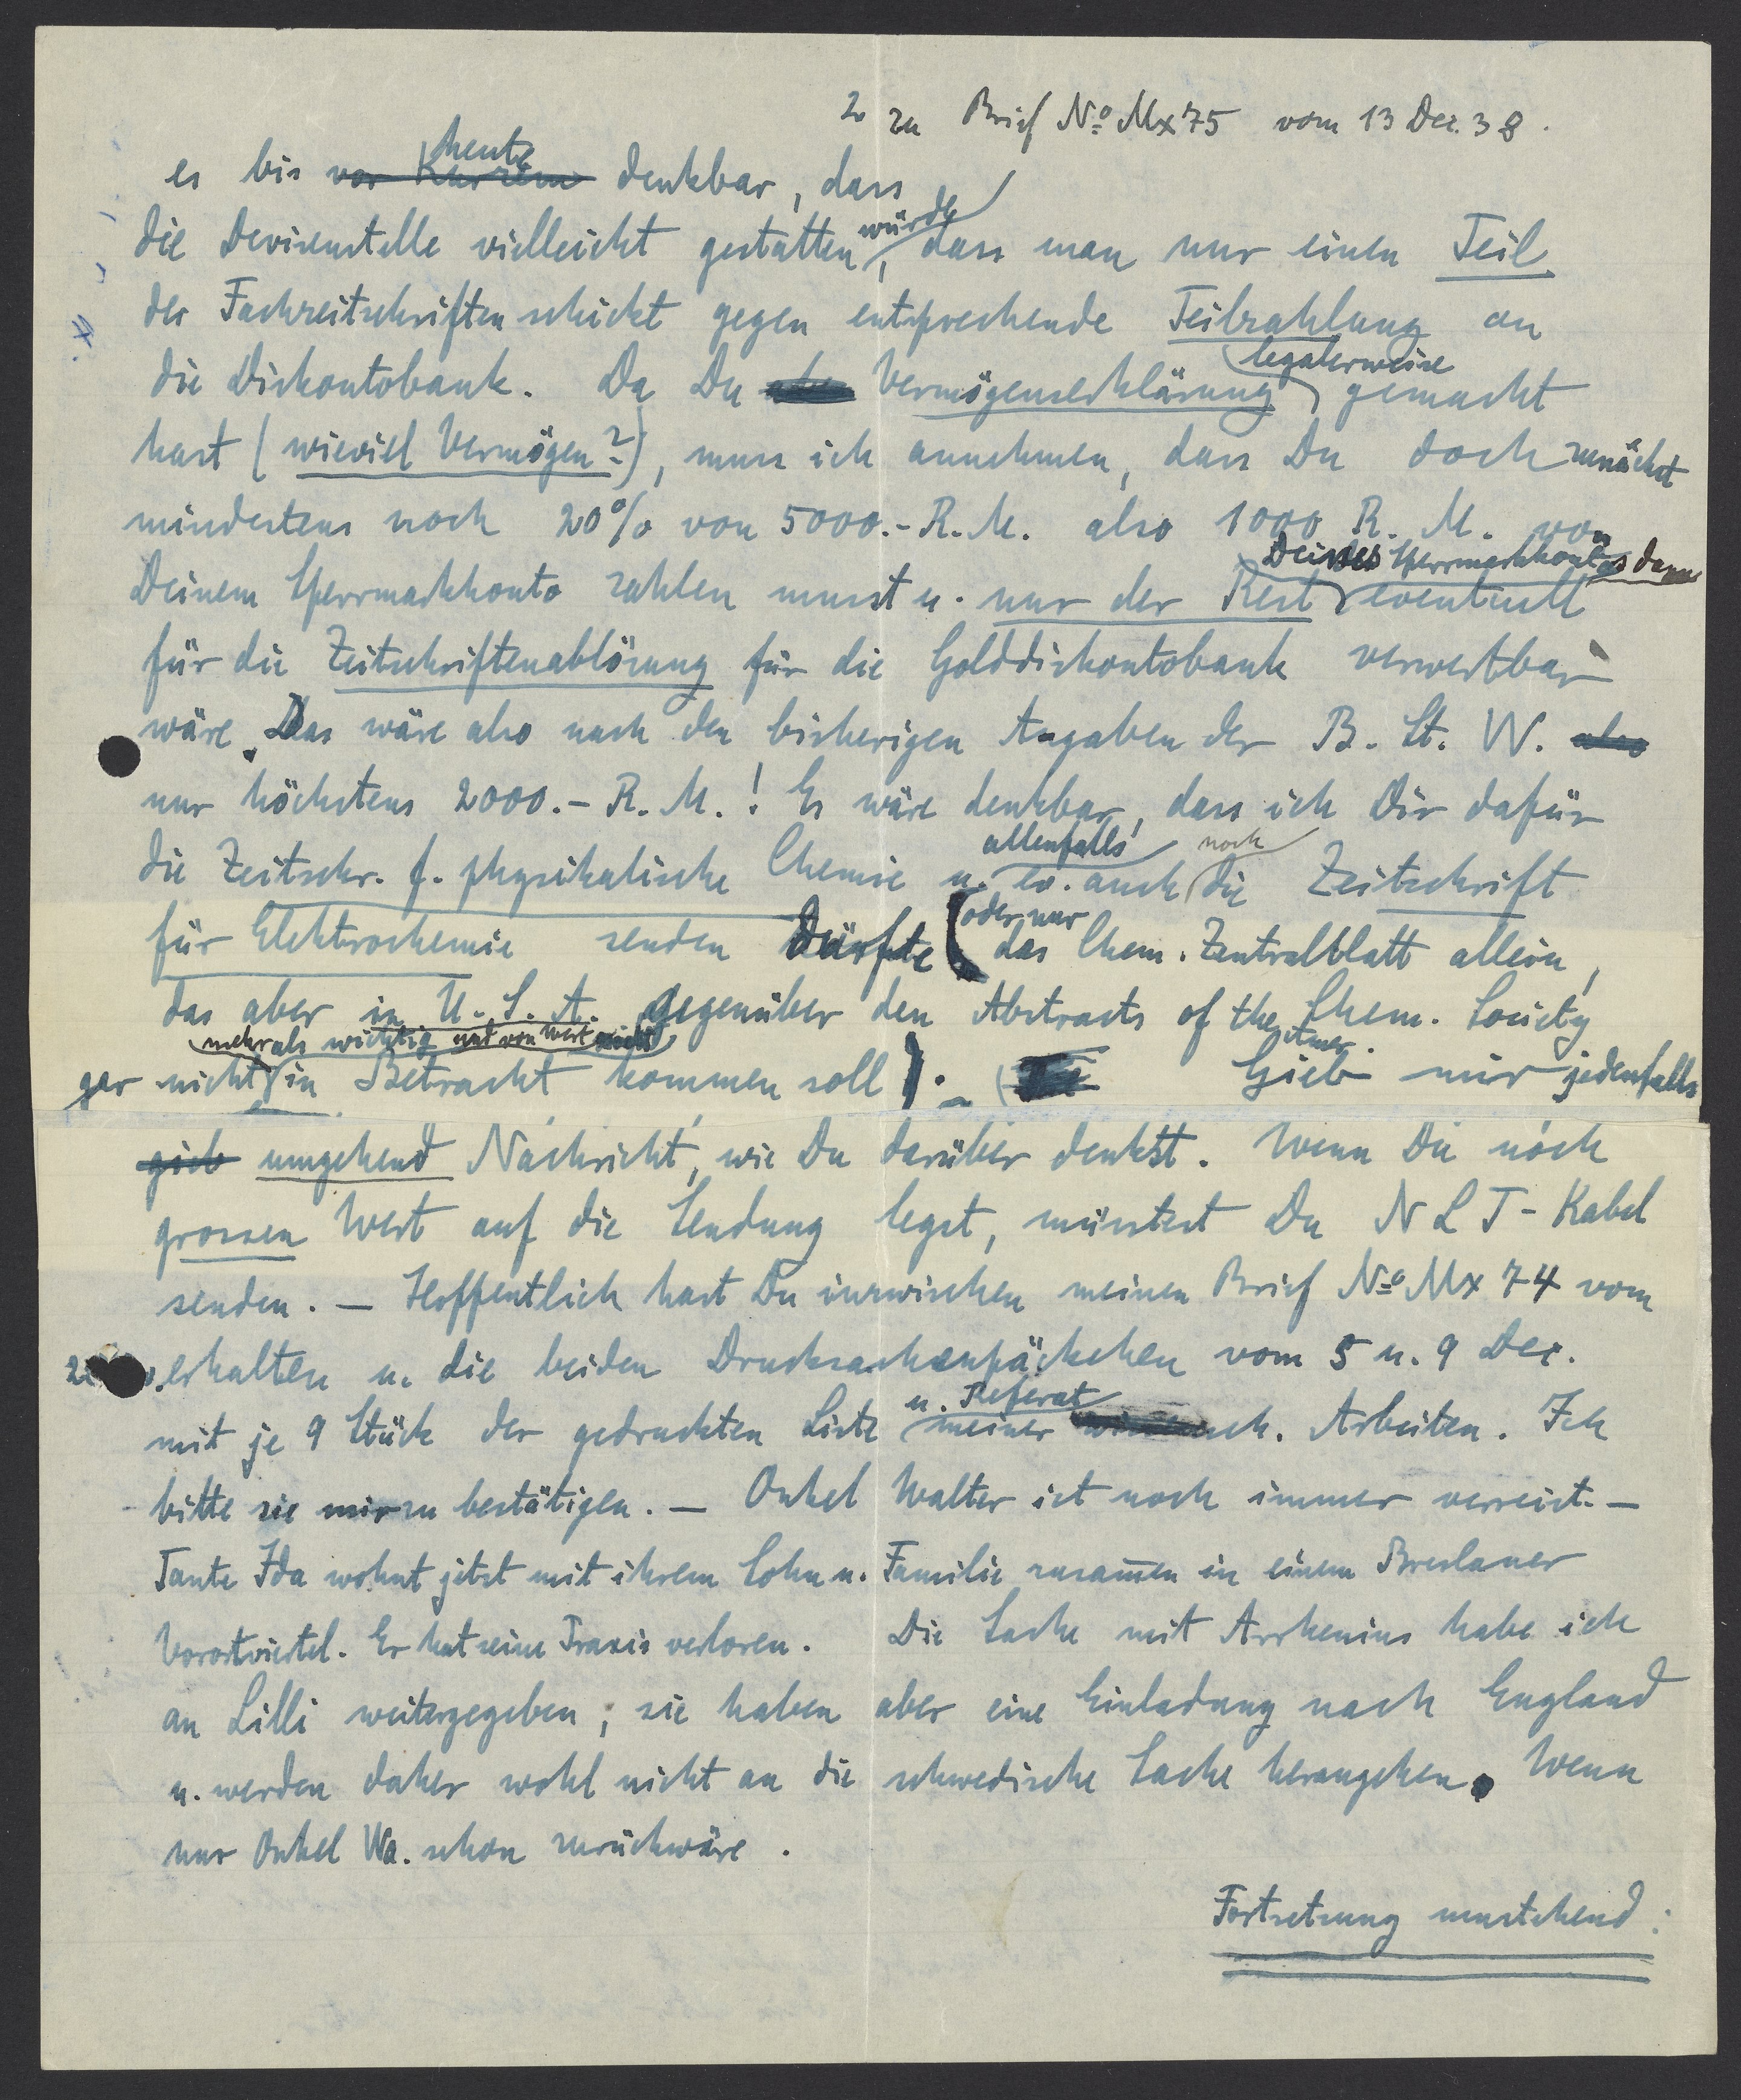 2 zu Brief No Mx 75 vom 13 Dez. 38.
es bis vor Kurzem heute denkbar, dass
die Devisenstelle vielleicht gestatten würde, dass man nur einen Teil
der Fachzeitschriften schickt gegen entsprechende Teilzahlung an
die Diskontobank. Da Du Vermögenserklärung legalerweise gemacht
hast (wieviel Vermögen?), muss ich annehmen, dass Du doch zunächst
mindestens noch 20% von 5000.- R.M. also 1000 R. M. von
Deinem Sperrmarkkonto zahlen musst u. nur der Rest Deines Sperrmarkkontos dann eventuell
für die Zeitschriftenablösung für die Golddiskontobank verwertbar
wäre. Das wäre also nach den bisherigen Angaben der B. St. W. also
nur höchstens 2000.- R. M.! Es wäre denkbar, dass ich Dir dafür
die Zeitschr. f. physikalische Chemie u. ev. allenfalls auch noch die Zeitschrift
für Elektrochemie senden dürfte (oder nur das Chem. Zentralblatt allein,
das aber in U. S. A. gegenüber den Abstracts of the Amer. Chem. Society
gar nicht mehr als wichtig und von Wert in Betracht kommen soll). Gieb mir jedenfalls
gieb umgehend Nachricht, wie Du darüber denkst. Wenn Du noch
grossen Wert auf die Sendung legst, müsstest Du N L T - Kabel
senden. — Hoffentlich hast Du inzwischen meinen Brief No Mx 74 vom
erhalten u. die beiden Drucksachenpäckchen vom 5 u. 9 Dez.
mit je 9 Stück der gedruckten Liste u. Referat meiner wissensch. Arbeiten. Ich
bitte sie mir zu bestätigen. — Onkel Walter ist noch immer verreist. —
Tante Ida wohnt jetzt mit ihrem Sohn u. Familie zusam̅en in einem Breslauer
Vorortviertel. Er hat seine Praxis verloren. Die Sache mit Arrhenius habe ich
an Lilli weitergegeben; sie haben aber eine Einladung nach England
u. werden daher wohl nicht an die schwedische Sache herangehen. Wenn
nur Onkel Wa. schon zurückwäre.
Fortsetzung umstehend: